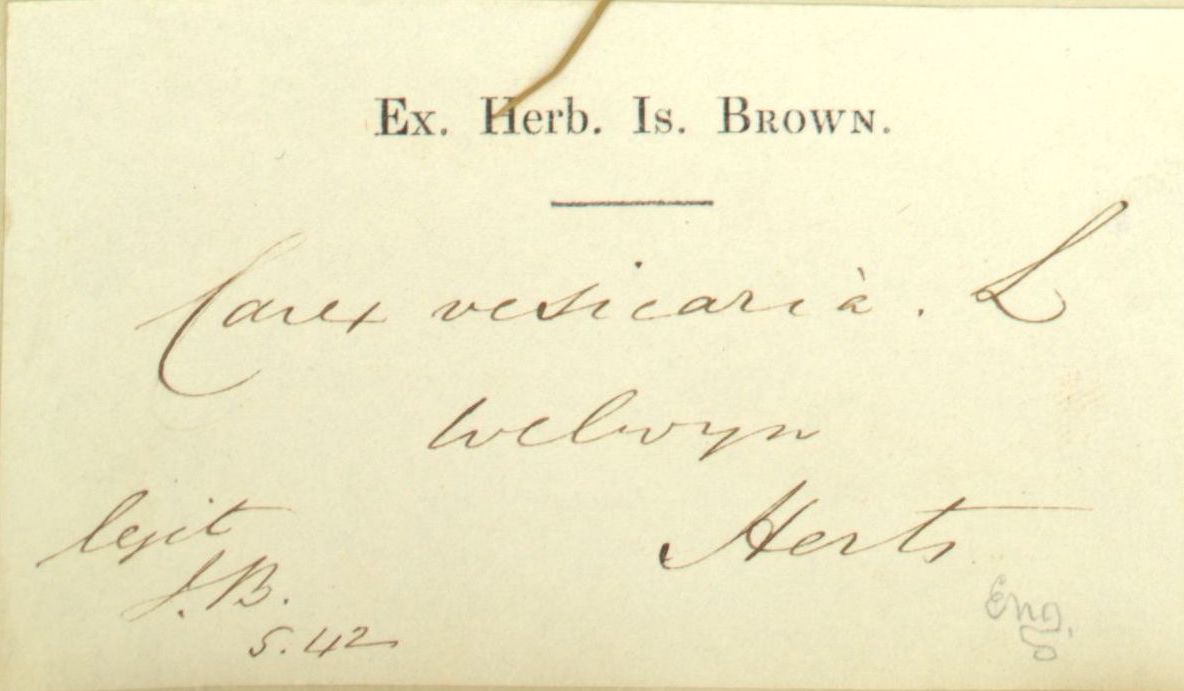 Ex. Herb. Is. Brown.
Carex vesicaria. L
Welwyn
Herts
legit
J.B.
5.42
Eng.